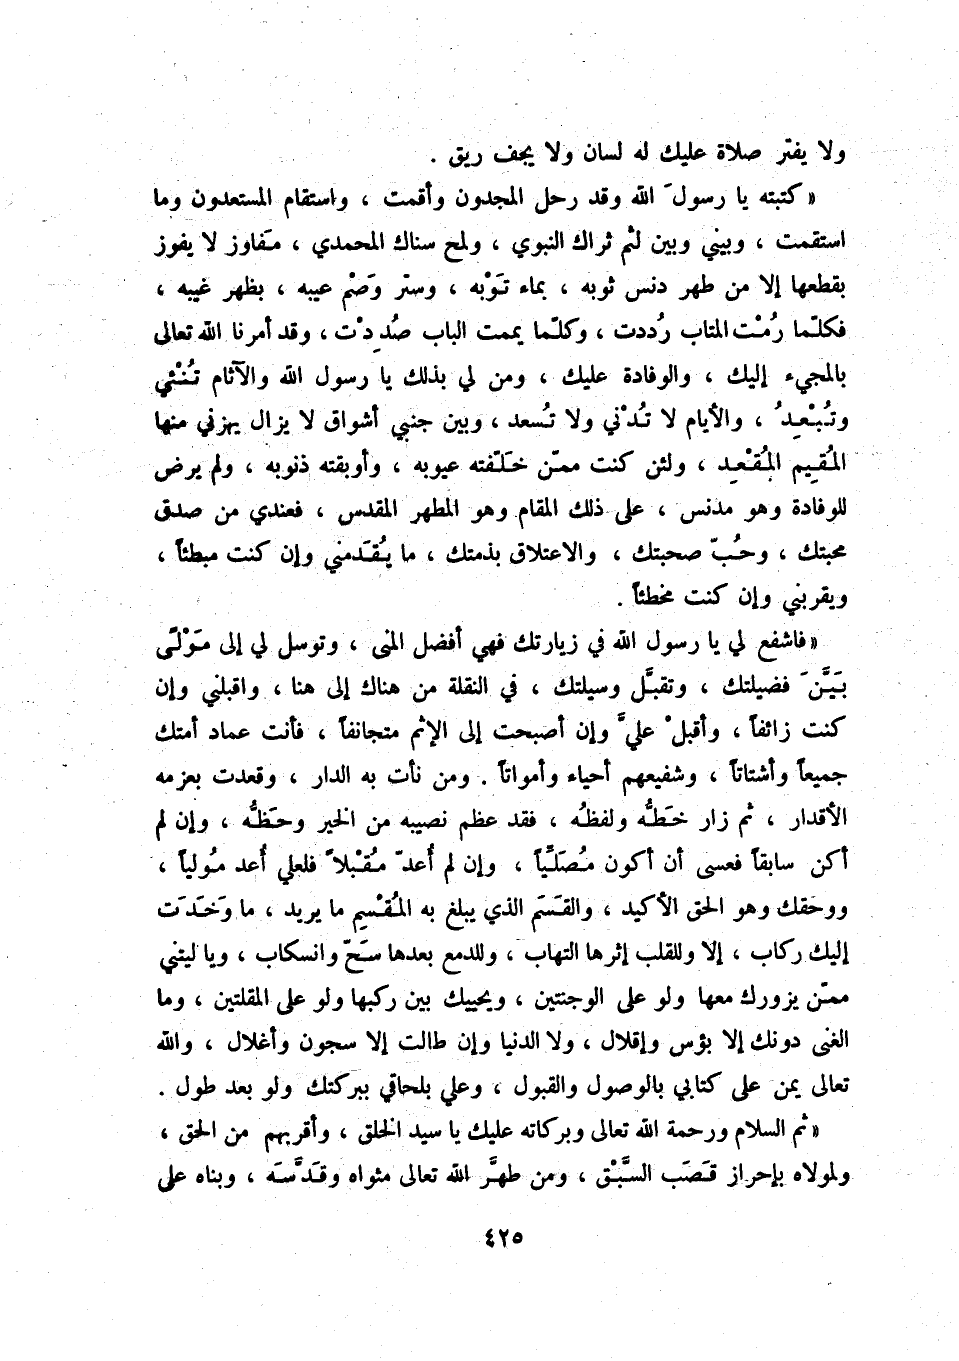 ولا يفتر صلاة عليك له لسان ولا يجف ريق .
« كتبته يا رسولَ الله وقد رحل المجدون وأقمت ، واستقام المستعدون وما
استقمت ، وبيني وبين لثم ثراك النبوي ، ولمح سناك المحمدي ، مَفاوز لا يفوز
بقطعها إلا من طهر دنس ثوبه ، بماء تَوْبه ، وستر وَصْم عيبه ، بظهر غيبه ،
فكلّما رُمْت المتاب رُددت ، وكلّما يممت الباب صُدِدْت ، وقد أمرنا الله تعالى
بالمجيء إليك ، والوفادة عليك ، ومن لي بذلك يا رسول الله والآثام تُنْئي
وتُبْعِدُ ، والأيام لا تُدْني ولا تُسعد ، وبين جنبي أشواق لا يزال يهزني منها
المُقيم المُقْعِد ، ولئن كنت ممّن خَلّفته عيوبه ، وأوبقته ذنوبه ، ولم يرض
للوفادة وهو مدنس ، على ذلك المقام وهو المطهر المقدس ، فعندي من صدق
محبتك ، وحُبّ صحبتك ، والاعتلاق بذمتك ، ما يُقَدمني وإن كنت مبطئاً ،
ويقربني وإن كنت مخطئاً .
« فاشفع لي يا رسول الله في زيارتك فهي أفضل المنى ، وتوسل لي إلى مَوْلًى
بَيَّنَ فضيلتك ، وتقبَّل وسيلتك ، في النقلة من هناك إلى هنا ، واقبلني وإن
كنت زائفاً ، وأقبلْ عليَّ وإن أصبحت إلى الإثم متجانفاً ، فأنت عماد أمتك
جميعاً وأشتاتاً ، وشفيعهم أحياء وأمواتاً . ومن نأت به الدار ، وقعدت بعزمه
الأقدار ، ثم زار خَطُّه ولفظُه ، فقد عظم نصيبه من الخير وحَظُّه ، وإن لم
أكن سابقاً فعسى أن أكون مُصَلّياً ، وإن لم أُعدّ مُقْبلاً فلعلي أُعد مُولياً ،
ووحقك وهو الحق الأكيد ، والقَسَم الذي يبلغ به المُقْسِم ما يريد ، ما وَخَدَت
إليك ركاب ، إلا وللقلب إثرها التهاب ، وللدمع بعدها سَحّ وانسكاب ، ويا ليتني
ممّن يزورك معها ولو على الوجنتين ، ويحييك بين ركبها ولو على المقلتين ، وما
الغنى دونك إلا بؤس وإقلال ، ولا الدنيا وإن طالت إلا سجون وأغلال ، والله
تعالى يمن على كتابي بالوصول والقبول ، وعلي بلحاقي ببركتك ولو بعد طول .
« ثم السلام ورحمة الله تعالى وبركاته عليك يا سيد الخلق ، وأقربهم من الحق ،
ولمولاه بإحراز قَصَب السَّبْق ، ومن طهَّر الله تعالى مثواه وقَدَّسَه ، وبناه على
٤٢٥